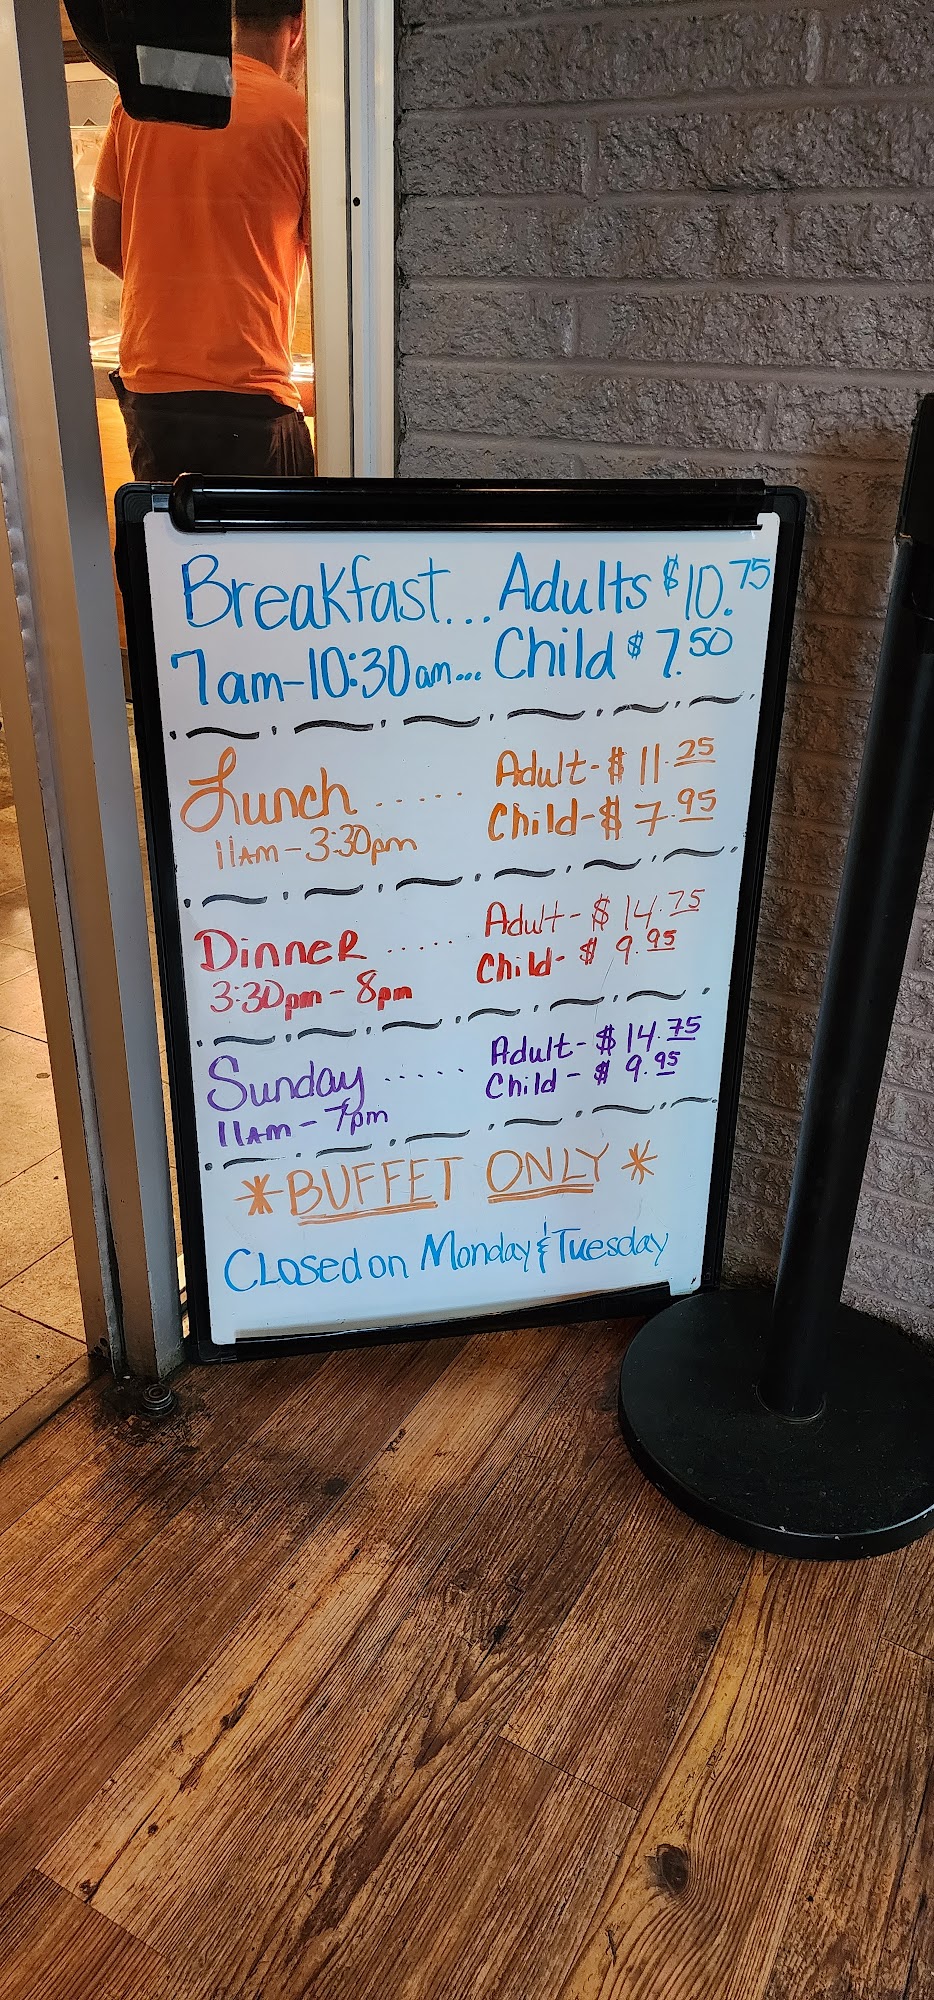 Breakfast... Adults $10.75
7am-10:30am... Child $7.50
Lunch ...... Adult-$ 11.25
11AM-3:30pm Child-$ 7.95
Dinner ...... Adult-$ 14.75
3:30pm-8pm Child-$ 9.95
Sunday ..... Adult-$ 14.75
11AM-7pm Child-$ 9.95
*BUFFET ONLY*
Closed on Monday & Tuesday